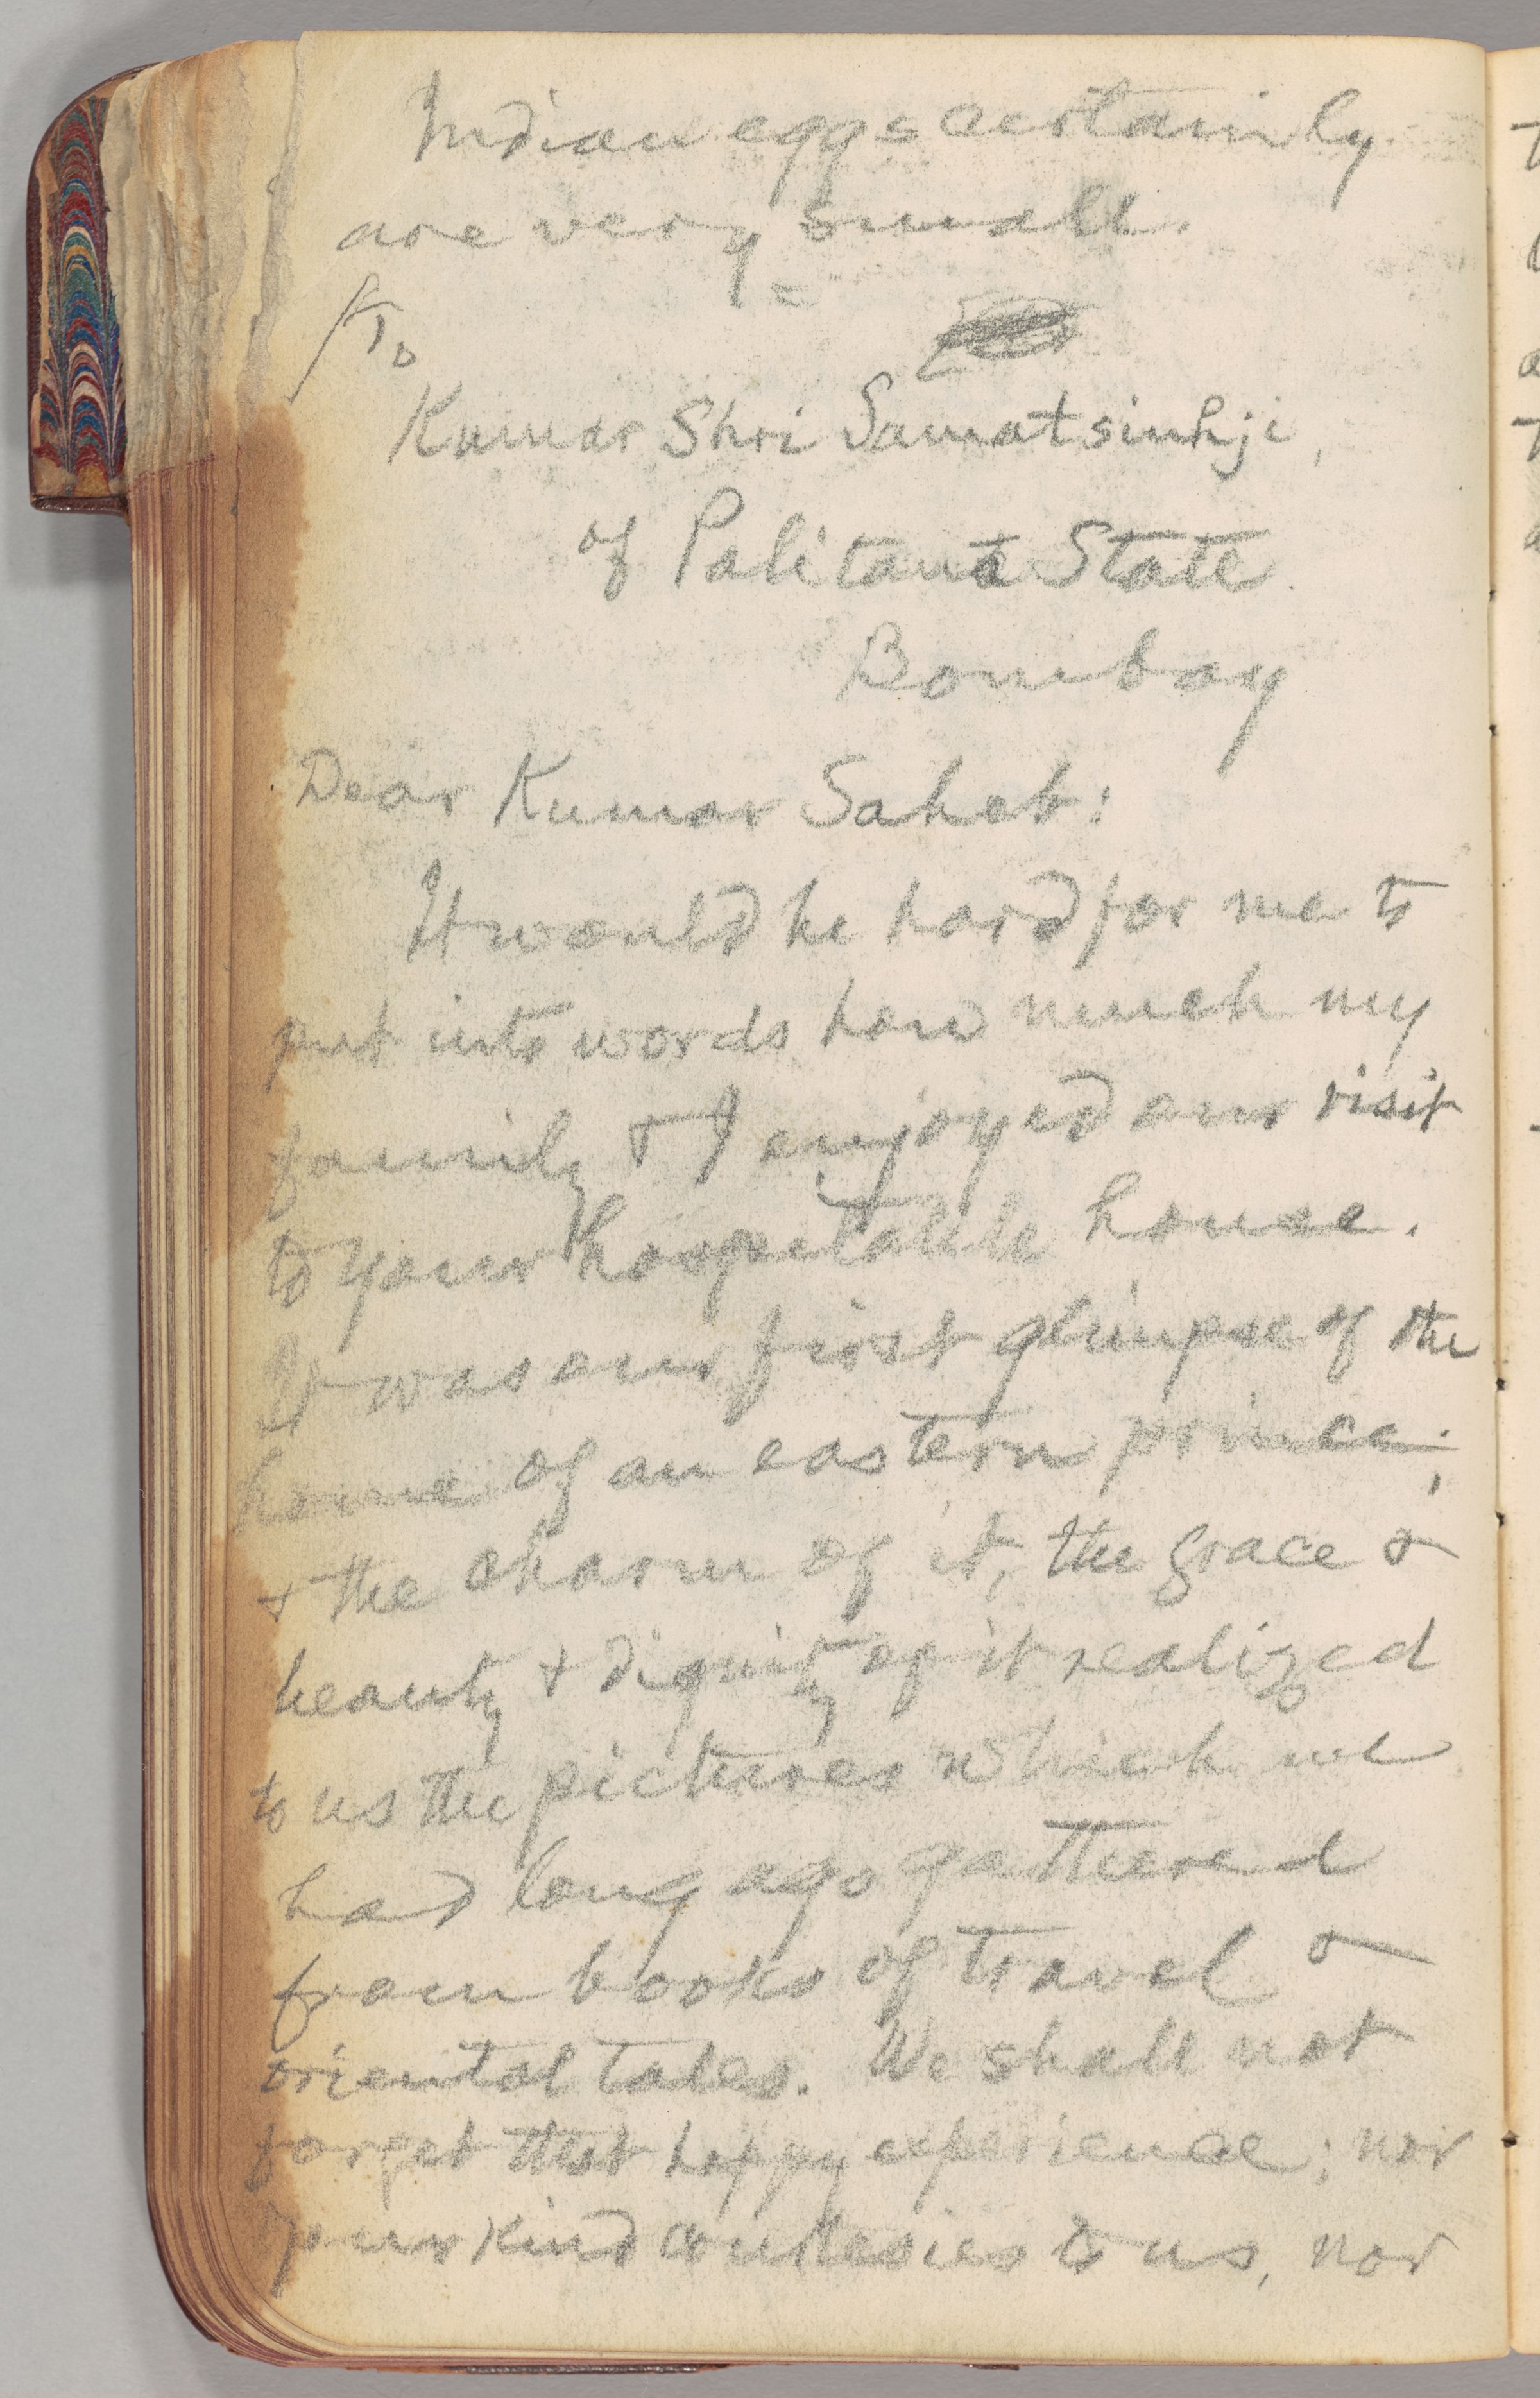 Indian eggs certainly
are very small.
To
Kumar Shri Samatsinhji,
of Palitana State.
Bombay
Dear Kumar Saheb:
It would be hard for me to
put into words how much my
family & I enjoyed our visit
to your hospitable house.
It was our first glimpse of the
home of an eastern prince;
& the charm of it, the grace &
beauty & dignity of it realized
to us the pictures which we
had long ago gathered
from books of travel &
oriental tales. We shall not
forget that happy experience; nor
your kind courtesies to us, nor